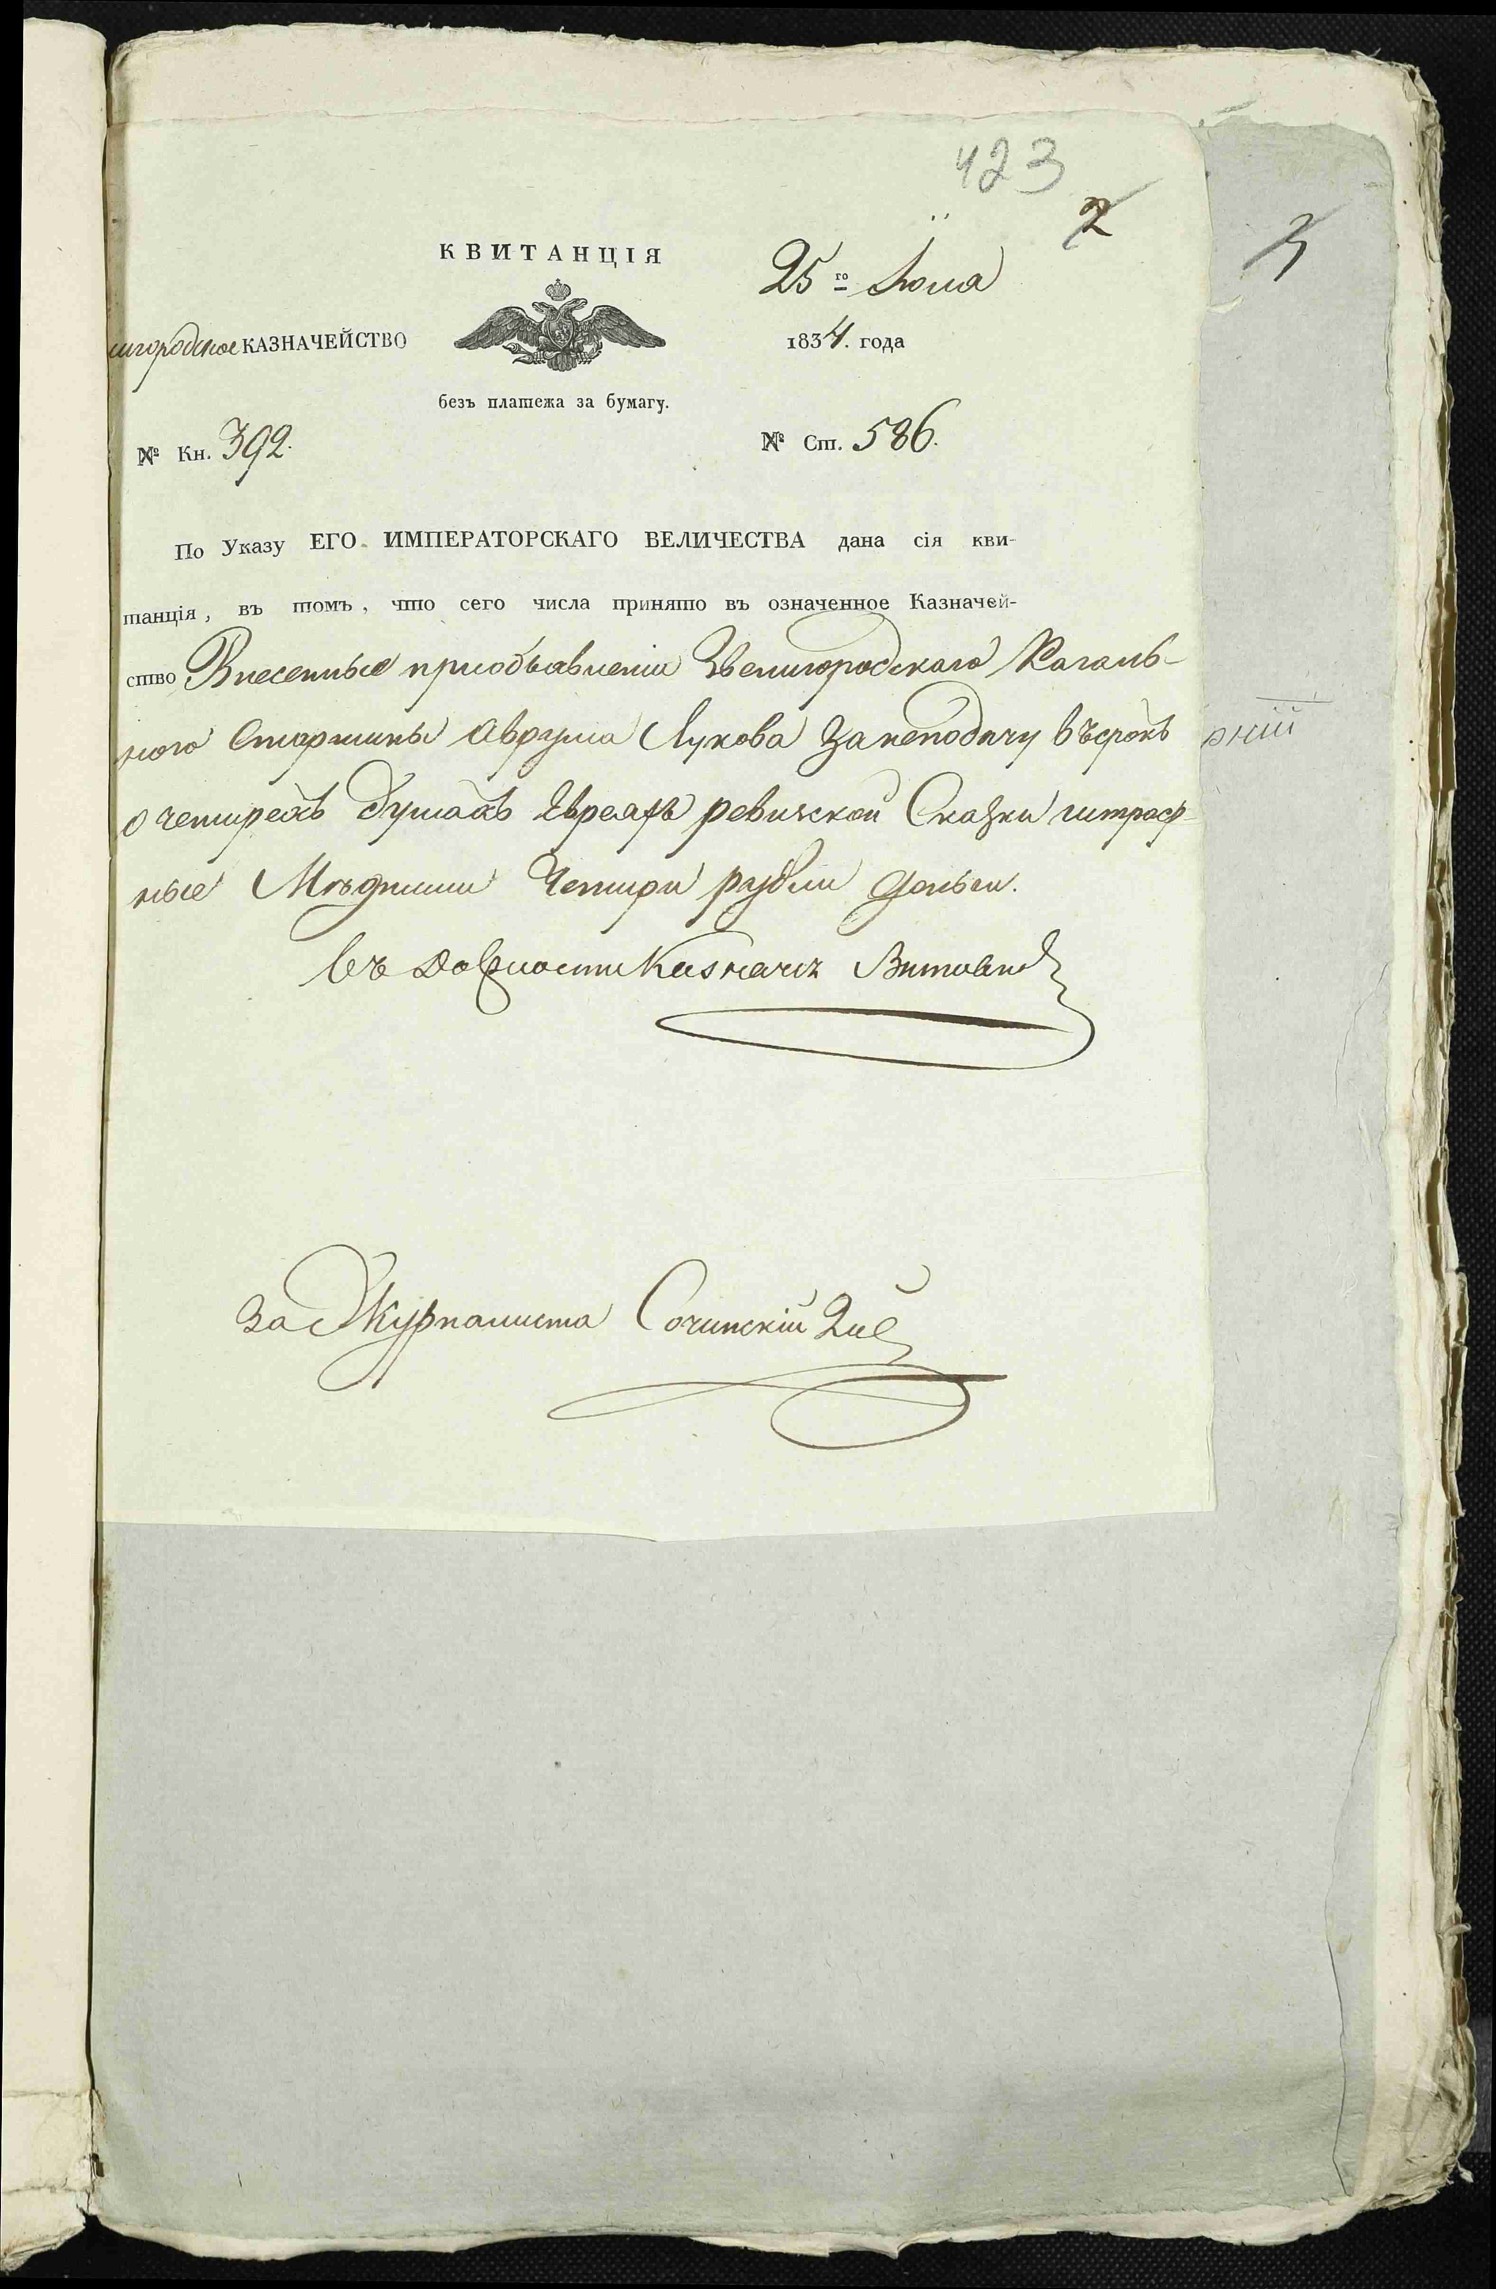 423
2
3
КВИТАНЦІЯ
25го Іюля
игородское КАЗНАЧЕЙСТВО
1834. года
безъ платежа за бумагу.
№ Кн. 392.
№ Ст. 586.
По Указу ЕГО ИМПЕРАТОРСКАГО ВЕЛИЧЕСТВА дана сія кви-
танція, въ томъ, что сего числа принято въ означенное Казначей-
ство Внесенные приобъявленіи Звенигородскаго Кагаль-
ного Старшины Аврума Лукова Занеподачу въсрокъ
о четирехъ душахъ Евреяхъ ревизской Сказки штраф-
ные Мѣдними Четири рубли деньги.
въ должности Казначея
за Журналиста Сочинскій
рній